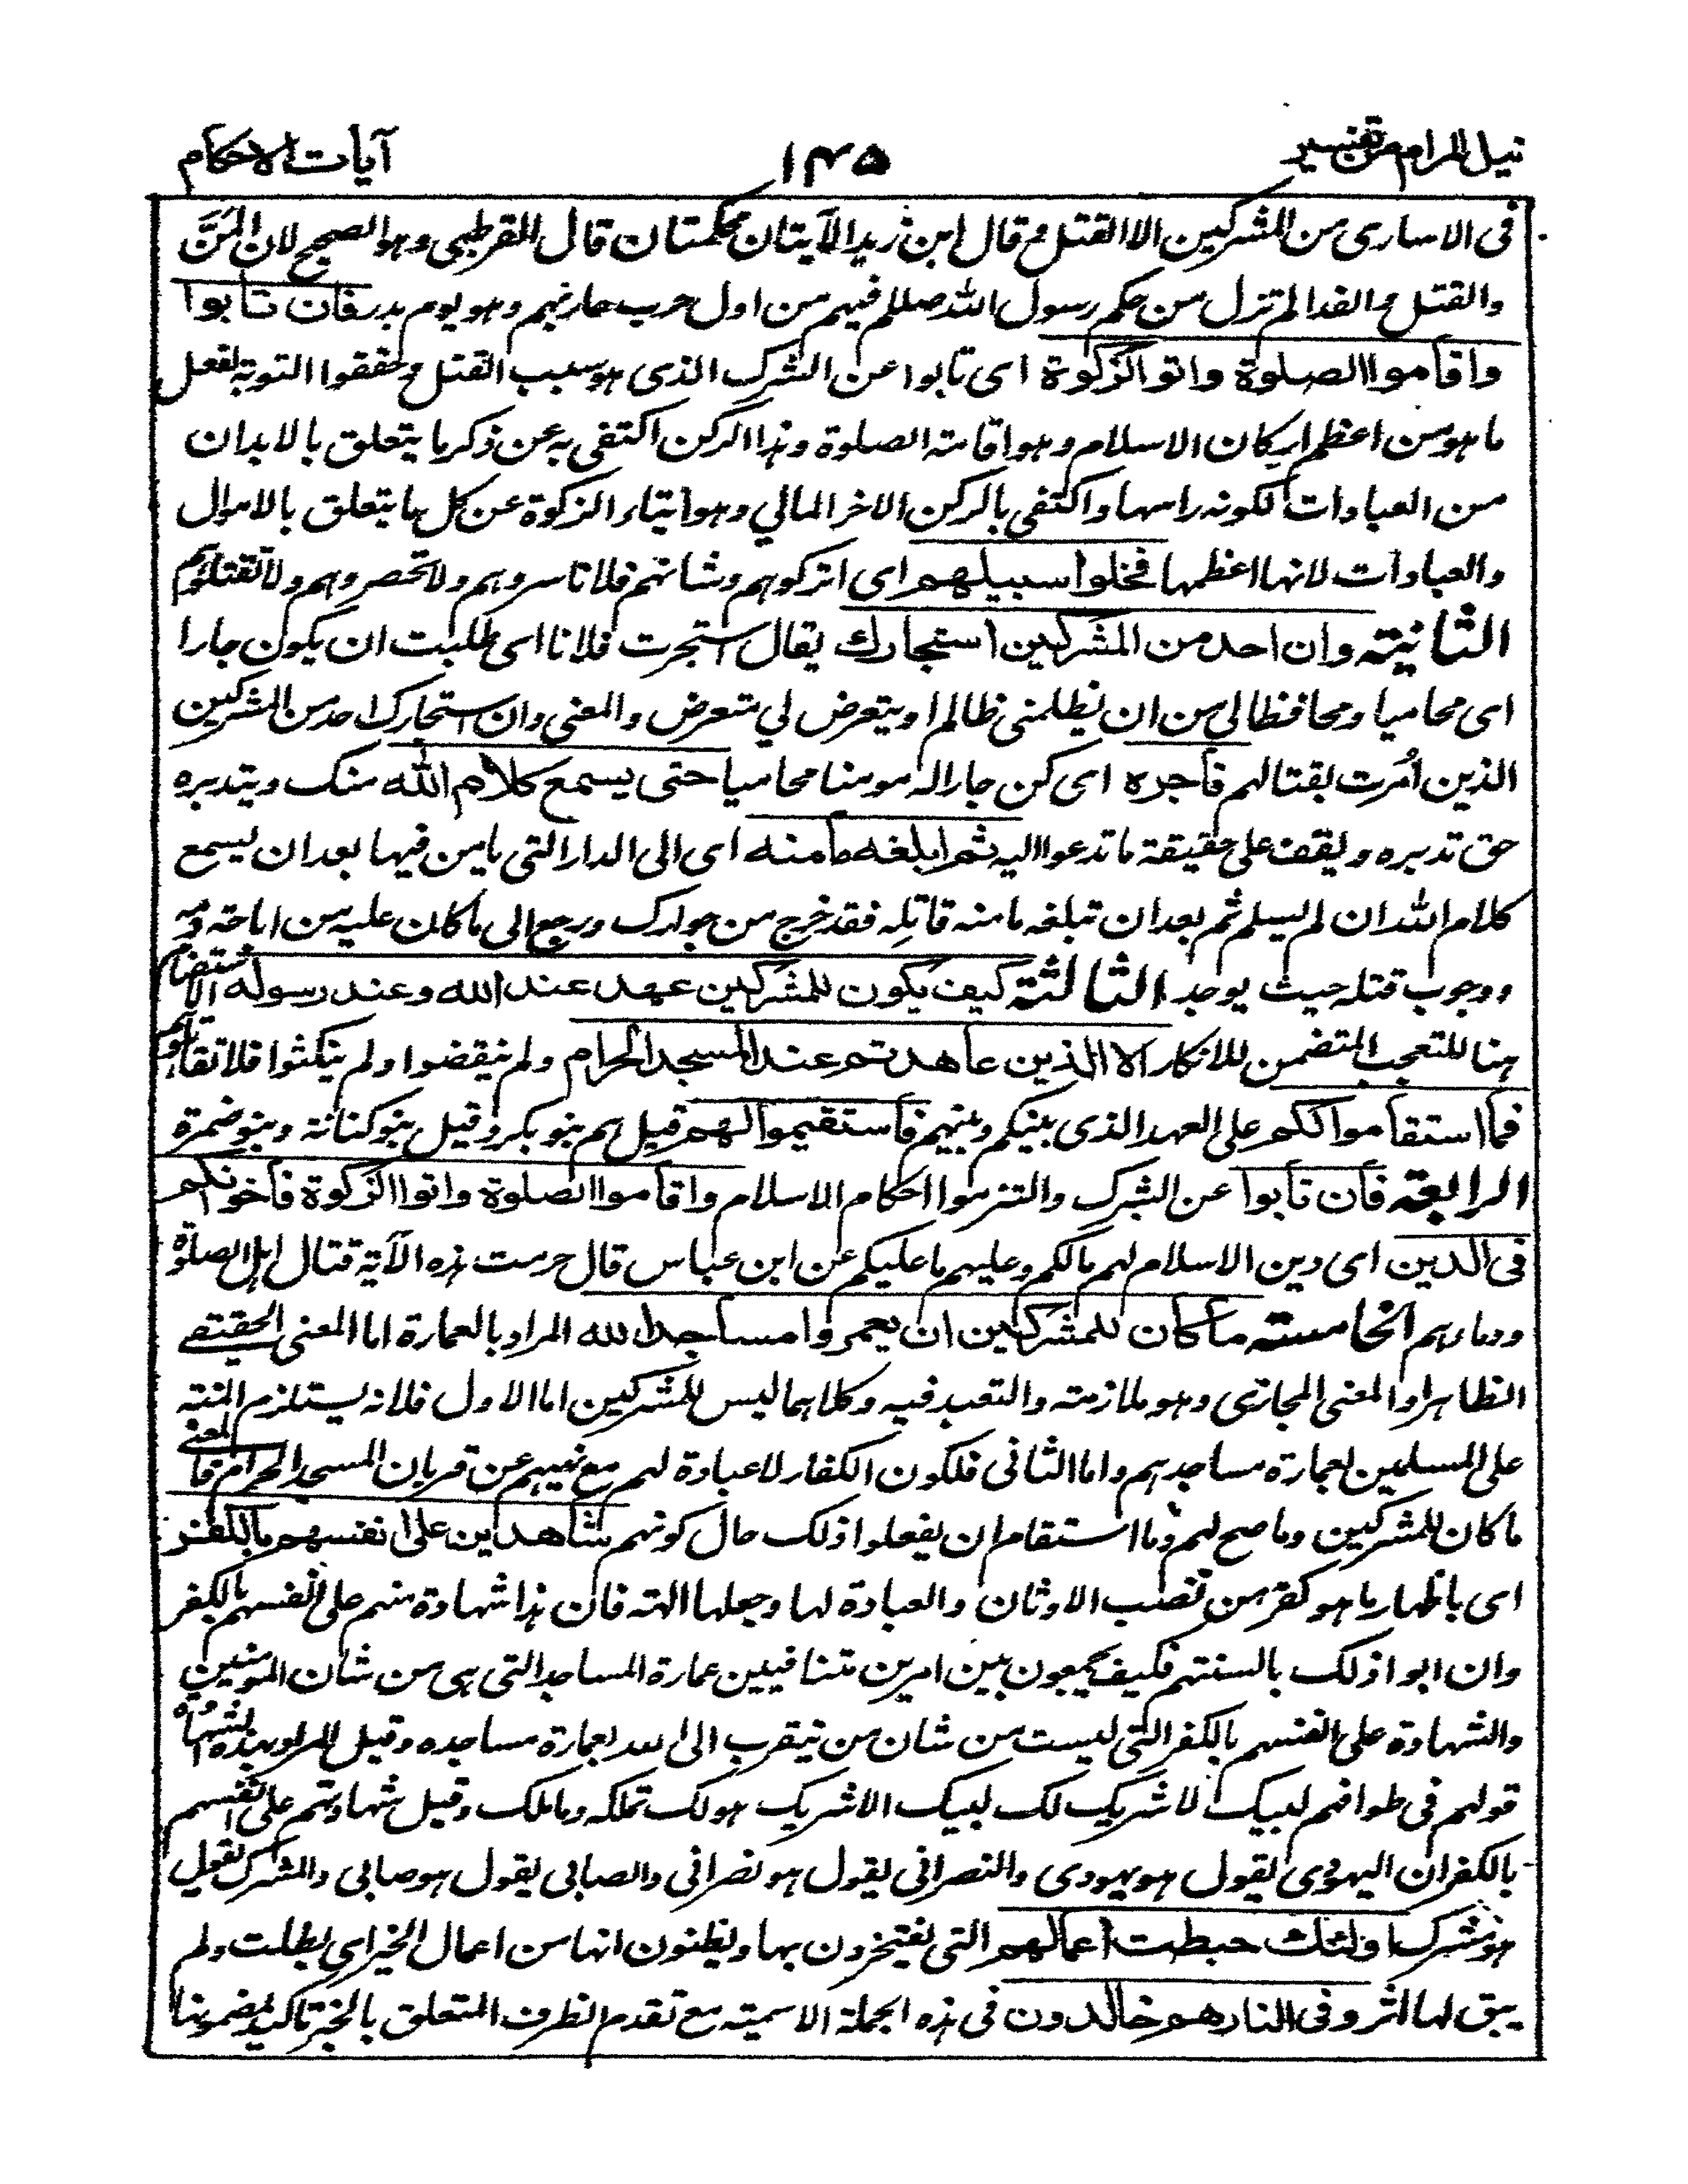 نيل المرام من تفسير
١٤٥
آيات الاحكام
فى الاسارى من المشركين الا القتل وقال ابن زيد الآيتان محكمتان قال القرطبى وهو الصحيح لان المَنَّ
والقتل والفدا لم تزل من حكم رسول الله صللم فيهم من اول حرب حاربهم وهو يوم بدر فان تابوا
واقاموا الصلوة واتوا الزكوة اى تابوا عن الشرك الذى هو سبب القتل وحققوا التوبة بفعل
ما هو من اعظم اركان الاسلام وهو اقامة الصلوة وهذا الركن اكتفى به عن ذكر ما يتعلق بالابدان
من العبادات لكونه راسها واكتفى بالركن الاخر المالي وهو ايتاء الزكوة عن كل ما يتعلق بالاموال
والعبادات لانها اعظمها فخلوا سبيلهم اى اتركوهم وشانهم فلا تاسروهم ولا تحصروهم ولا تقتلوهم
الثانية وان احد من المشركين استجارك يقال استجرت فلانا اى طلبت ان يكون جارا
اى محاميا ومحافظا لي من ان يظلمنى ظالم او يتعرض لي متعرض والمعنى وان استجارك احد من المشركين
الذين اُمرت بقتالهم فأجره اى كن جارا له مومنا محاميا حتى يسمع كلام الله منك ويتدبره
حق تدبره ويقف على حقيقة ما تدعوا اليه ثم ابلغه مأمنه اى الى الدار التى يامن فيها بعد ان يسمع
كلام الله ان لم يسلم ثم بعد ان تبلغه مامنه قاتِله فقد خرج من جوارك ورجع الى ما كان عليه من اباحة دمه
ووجوب قتله حيث يوجد الثالثة كيف يكون للمشركين عهد عند الله وعند رسوله الاستفهام
هنا للتعجب المتضمن للانكار الا الذين عاهدتم عند المسجد الحرام ولم ينقضوا ولم ينكثوا فلا تقاتلوهم
فما استقاموا لكم على العهد الذى بينكم وبينهم فاستقيموا لهم قيل هم بنو بكر وقيل بنو كنانة وبنو ضمرة
الرابعة فان تابوا عن الشرك والتزموا احكام الاسلام واقاموا الصلوة واتوا الزكوة فاخوانكم
فى الدين اى دين الاسلام لهم مالكم وعليهم ما عليكم عن ابن عباس قال حرمت هذه الآية قتال اهل الصلوة
ودماءهم الخامسة ما كان للمشركين ان يعمروا مساجد الله المراد بالعمارة اما المعنى الحقيقى
الظاهر او المعنى المجازى وهو ملازمته والتعبد فيه وكلاهما ليس للمشركين اما الاول فلانه يستلزم المنة
على المسلمين بعمارة مساجدهم واما الثانى فلكون الكفار لا عبادة لهم مع نهيهم عن قربان المسجد الحرام فالمعنى
ما كان للمشركين وما صح لهم وما استقام ان يفعلوا ذلك حال كونهم شاهدين على انفسهم بالكفر
اى باظهار ما هو كفر من نصب الاوثان والعبادة لها وجعلها الهة فان هذا شهادة منهم على انفسهم بالكفر
وان ابوا ذلك بالسنتهم فكيف يجمعون بين امرين متنافيين عمارة المساجد التى هى من شان المومنين
والشهادة على انفسهم بالكفر التى ليست من شان من يتقرب الى الله بعمارة مساجده وقيل المراد بهذه الشهادة
قولهم فى طوافهم لبيك لا شريك لك لبيك الا شريك هو لك تملكه وما ملك وقيل شهادتهم على انفسهم
بالكفر ان اليهودى يقول هو يهودى والنصرانى يقول هو نصرانى والصابى يقول هو صابى والمشرك يقول
هو مشرك اولئك حبطت اعمالهم التى يفتخرون بها ويظنون انها من اعمال الخير اى بطلت ولم
يبق لها اثر وفى النار هم خالدون فى هذه الجملة الاسمية مع تقدم الظرف المتعلق بالخبر تاكيد لمضمونها